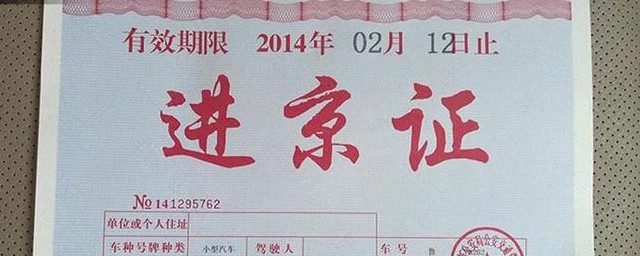 有效期限 2014年 02月 12日止
进京证
No 141295762
单位或个人住址
车种号牌种类 小型汽车 驾驶人 车号 鲁